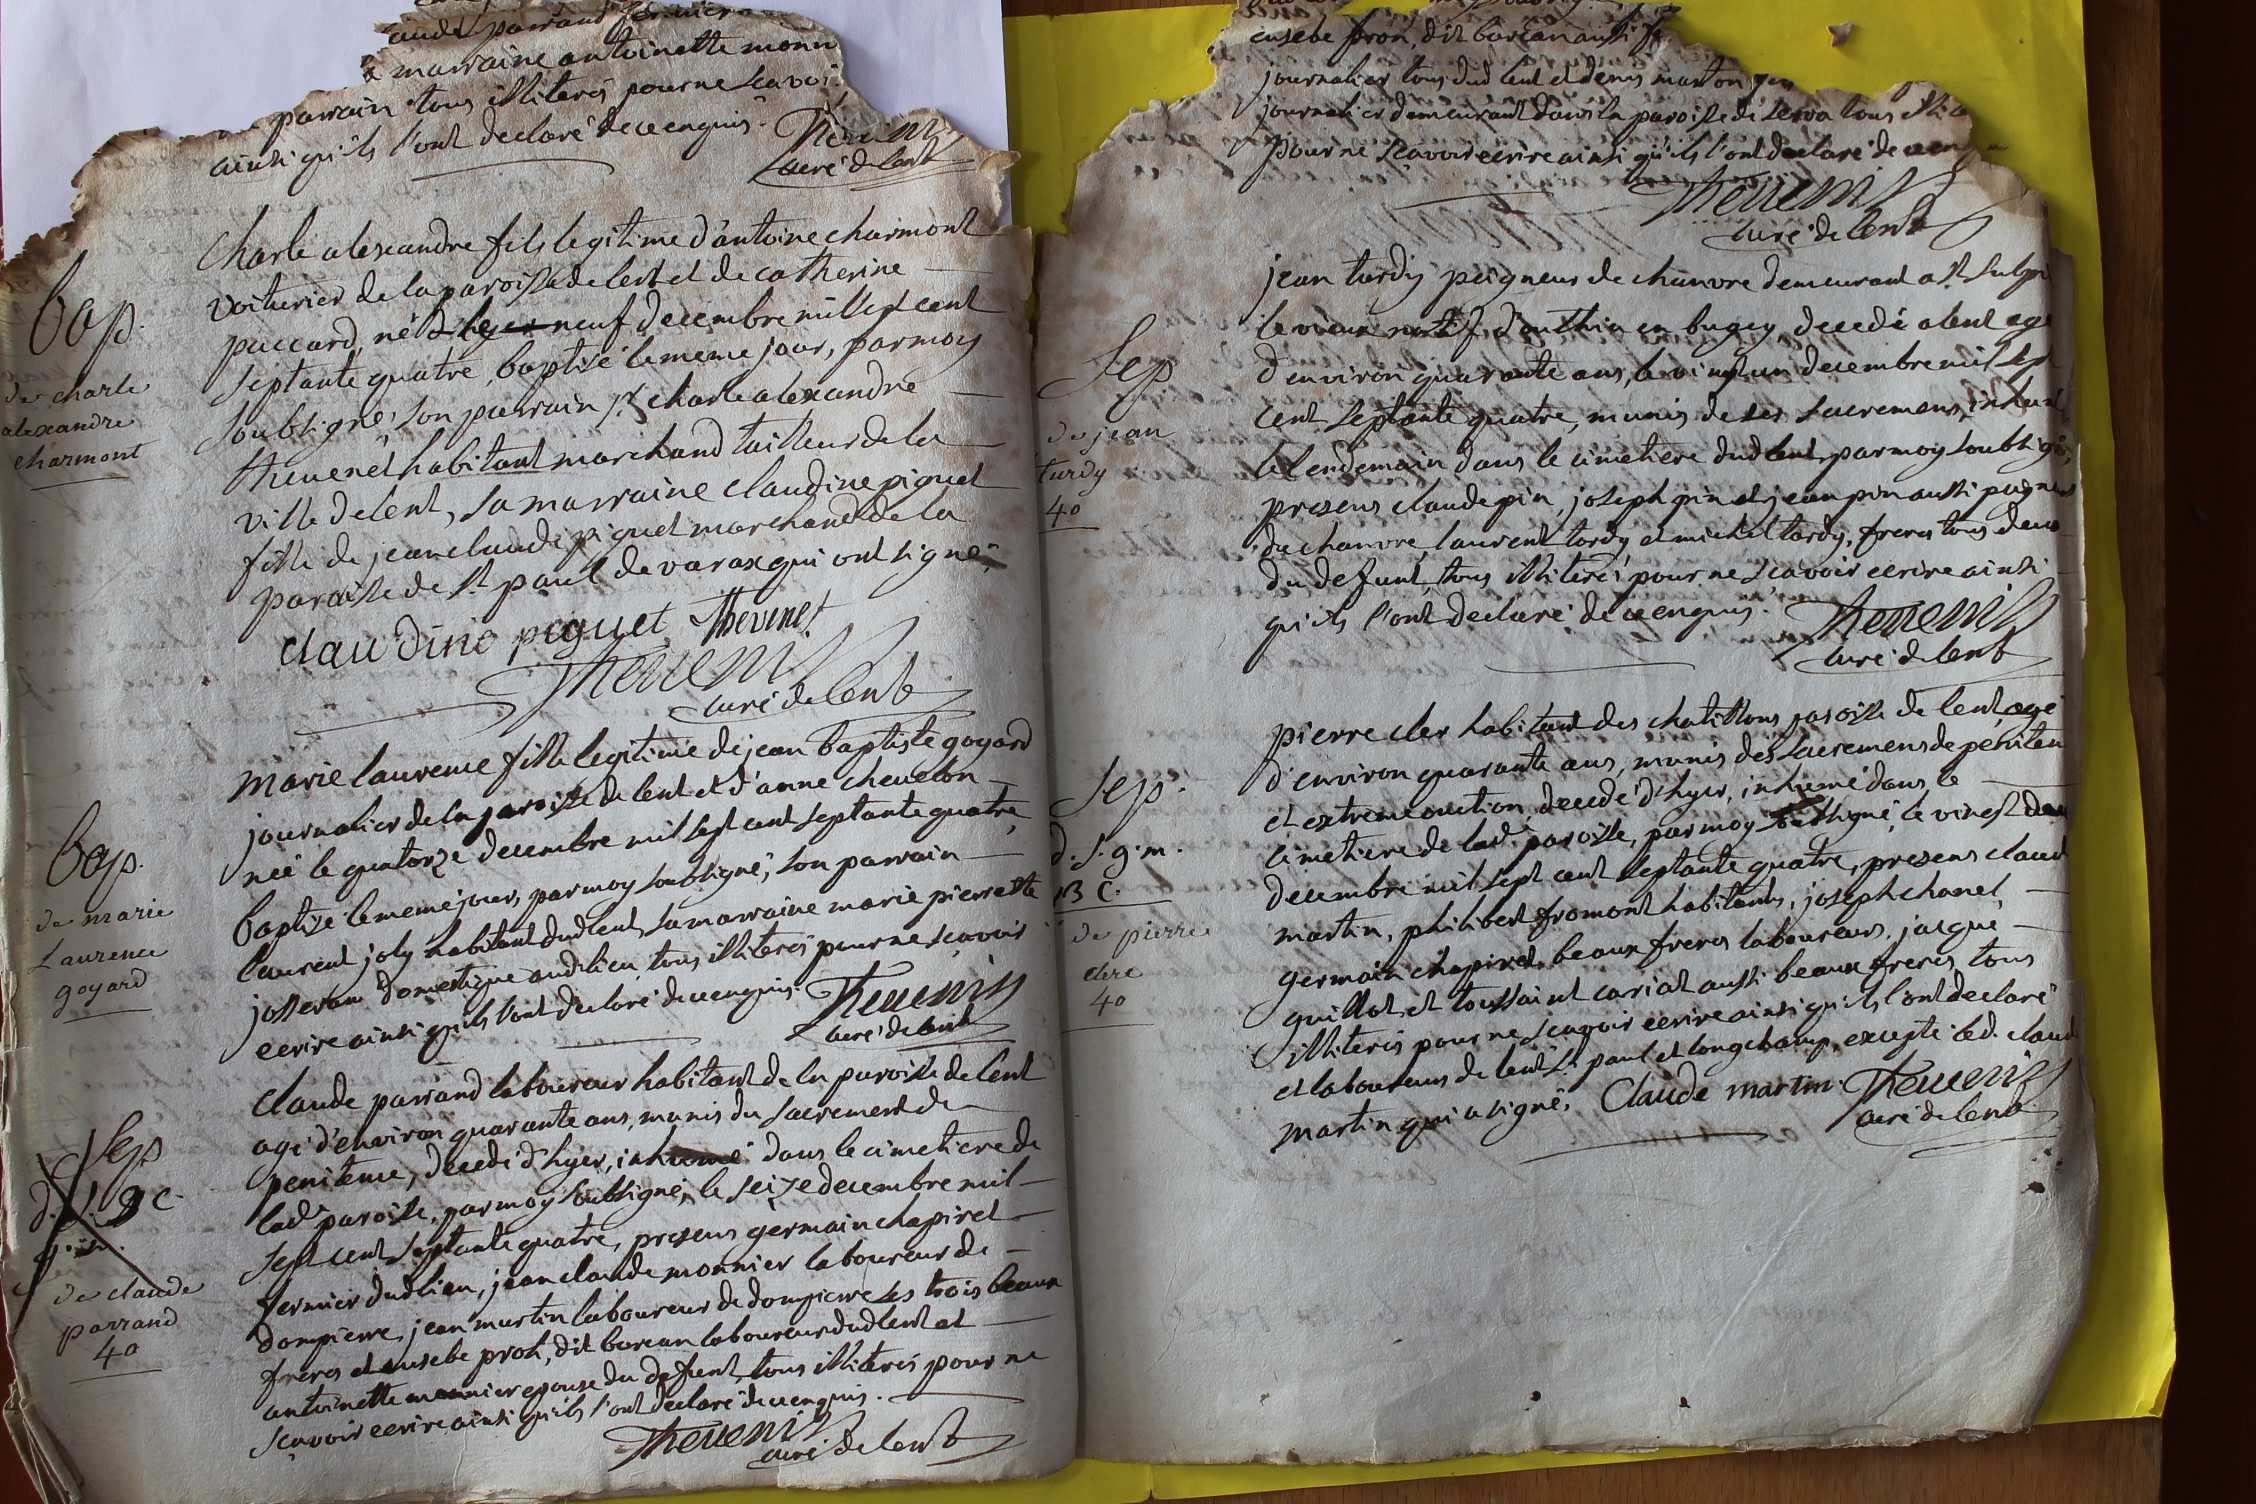 aude parrand fermier
sa marraine antoinette monn
parrain tous illiterés pour ne scavoi
ainsi qu'ils l'ont declaré de ce enquis.
Thevenin
curé de lent
bap.
de charle
alexandre
charmont
Charle alexandre fils legitime d'antoine charmont
voiturier de la paroisse de lent et de catherine
puccard, né le neuf decembre mil sept cent
septante quatre, baptisé le meme jour, par moy
soubsigné, son parrain sr charle alexandre
thevenet habitant marchand tailleur de la
ville de lent, sa marraine claudine piquet
fille de jean claude piquet marchand de la
paroisse de st paul de varax qui ont signé,
claudine piquet Thevenet
Thevenin
curé de lent
bap.
de marie
Laurence
goyard
marie laurence fille legitime de jean baptiste goyard
journalier de la paroisse de lent et d'anne chevelon
née le quatorze decembre mil sept cent septante quatre,
baptisé le meme jour, par moy soubsigné, son parrain
laurent joly habitant dud lent, sa marraine marie pierrette
josseran domestique aud. lieu, tous illiterés pour ne sçavoir
ecrire ainsi qu'ils l'ont declaré de ce enquis.
Thevenin
curé de lent
sep
d. s. g c.
de claude
parrand
40
Claude parrand laboureur habitant de la paroisse de lent
agé d'environ quarante ans, munis du sacrement de
penitence, decedé d'hyer, inhumé dans le cimetiere de
lade paroisse, par moy soubsigné, le seize decembre mil
sept cent septante quatre, presens germain chapiret
fermier dud. lieu, jean claude monnier laboureur de
dompierre, jean martin laboureur de dompierre ses trois beaux
freres et eusebe pron, dit barcan laboureur dud lent et
antoinette monnier epouse du defunt, tous illiterés pour ne
sçavoir ecrire ainsi qu'ils l'ont declaré de ce enquis.
Thevenin
curé de lent
eusebe pron, dit barcan aussi
journalier tous dud lent et denis marton
journalier demeurant dans la paroisse de serva tous
pour ne sçavoir ecrire ainsi qu'ils l'ont declaré de ce
Thevenin
curé de lent
Sep
de jean
tardy
40
jean tardy peigneur de chanvre demeurant a st sulpi
le vieux natif d'outhia en bugey, decedé a lent agé
d'environ quarante ans, le vingt un decembre mil sept
cent septante quatre, munis de ses sacremens, inhumé
le lendemain dans le cimetiere dud lent, par moy soubsigné,
presens claude pin, joseph pin et jean pin aussi peigneurs
de chanvre, laurent tardy et michel tardy, freres tous deux
du defunt, tous illiterés pour ne scavoir ecrire ainsi
qu'ils l'ont declaré de ce enquis.
Thevenin
curé de lent
sep.
d. s. g. m.
B C.
de pierre
clere
40
pierre cler habitant des chatillons paroisse de lent, agé
d'environ quarante ans, munis des sacremens de peniten
et extreme onction, decedé d'hyer, inhumé dans le
cimetiere de lade paroisse, par moy soubsigné, le vingt deux
decembre mil sept cent septante quatre, presens claude
martin, philibert fromont habitants, joseph chanel,
germain chapiret, beaux freres laboureurs, jacque
guillot, et toussaint cariat aussi beaux freres tous
illiterés pour ne sçavoir ecrire ainsi qu'ils l'ont declaré
et laboureurs de lent st paul et longchamp, excepté led. claude
martin qui a signé, Claude martin. Thevenin
curé de lent